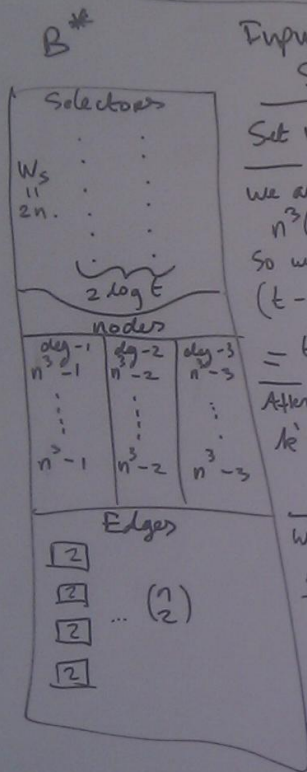 B*
Selectors
Ws
=
2n.
2 log t
nodes
deg-1 deg-2 deg-3
n³-1 n³-2 n³-3
n³-1 n³-2 n³-3
Edges
2
2
2
2
... (n 2)
Inpu
S
Set
we a
n³(
So w
(t -
= t
After
k'
w